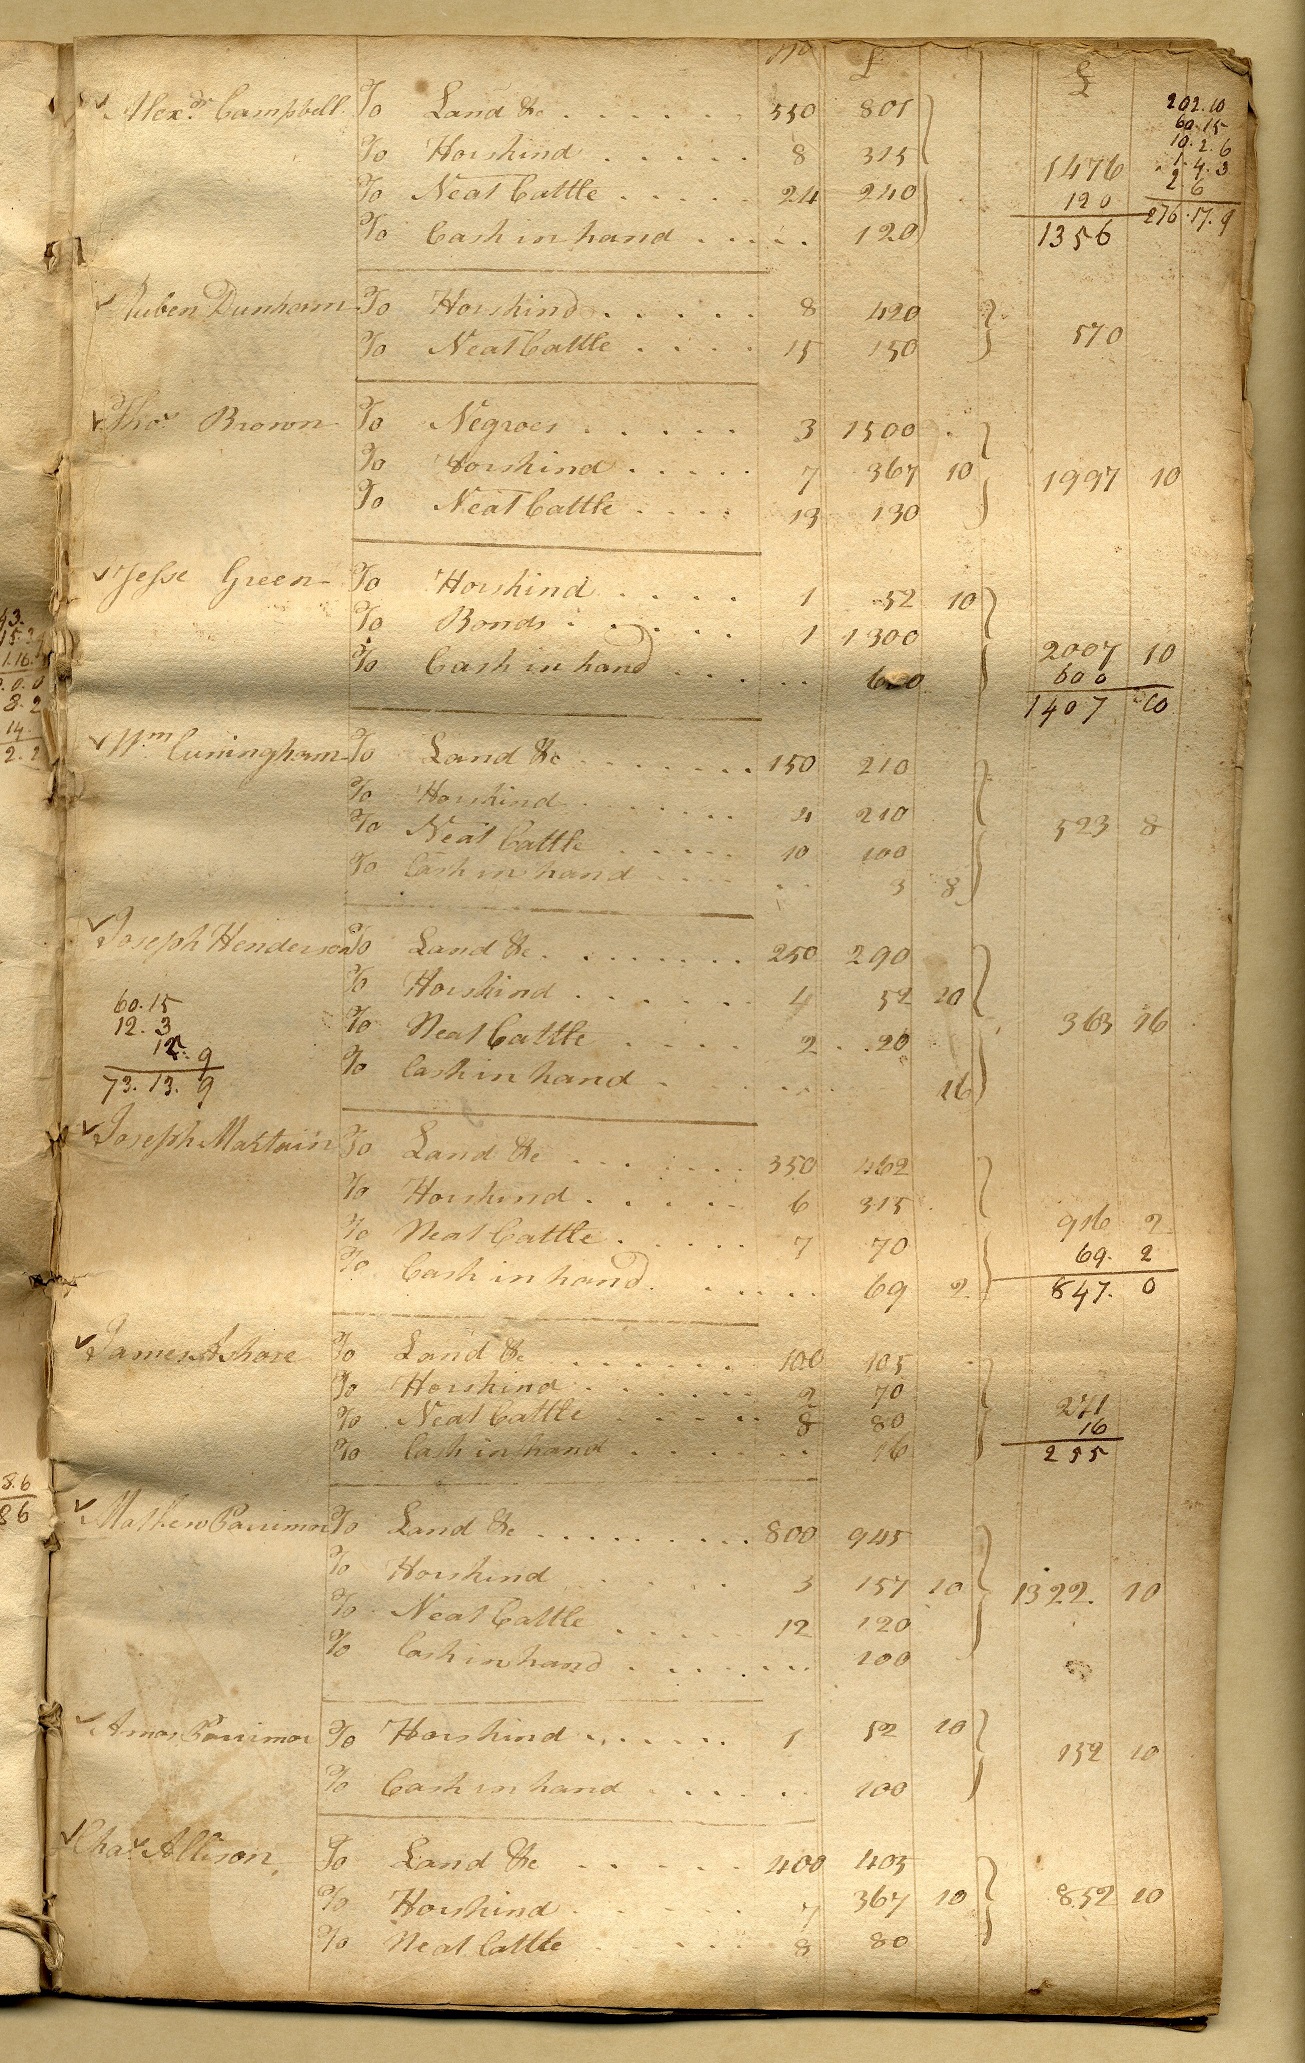 No £ £
Alexdr Campbell To Land &c 550 801 202.10
60.15
To Horskind 8 315 10.2.6
1476 1.4.3
To Neat Cattle 24 240 120 2.6
To Cash in hand 120 1356 276.17.9
Ruben Dunham To Horskind 8 420
570
To Neat Cattle 15 150
Thos Brown To Negroes 3 1500
To Horskind 7 367 10 1997 10
To Neat Cattle 13 130
Jesse Green To Horskind 1 52 10
To Bonds 1 1300
2007 10
To Cash in hand 600 600
1407 10
Wm Cuningham To Land &c 150 210
To Horskind 4 210
523 8
To Neat Cattle 10 100
To Cash in hand 3 8
Joseph Henderson To Land &c 250 290
To Horskind 4 52 10
60.15
12.3 To Neat Cattle 2 20 363 16
12.9
73.13.9 To Cash in hand 16
Joseph Martain To Land &c 350 462
To Horskind 6 315
916 2
To Neat Cattle 7 70 69.2
To Cash in hand 69 2 847.0
James Ashore To Land &c 100 105
To Horskind 2 70
271
To Neat Cattle 8 80 16
To Cash in hand 16 255
Mathew Parrimor To Land &c 800 945
To Horskind 3 157 10 1322 10
To Neat Cattle 12 120
To Cash in hand 100
Amos Parrimor To Horskind 1 52 10
152 10
To Cash in hand 100
Chas Allison To Land &c 400 405
To Horskind 7 367 10 852 10
To Neat Cattle 8 80